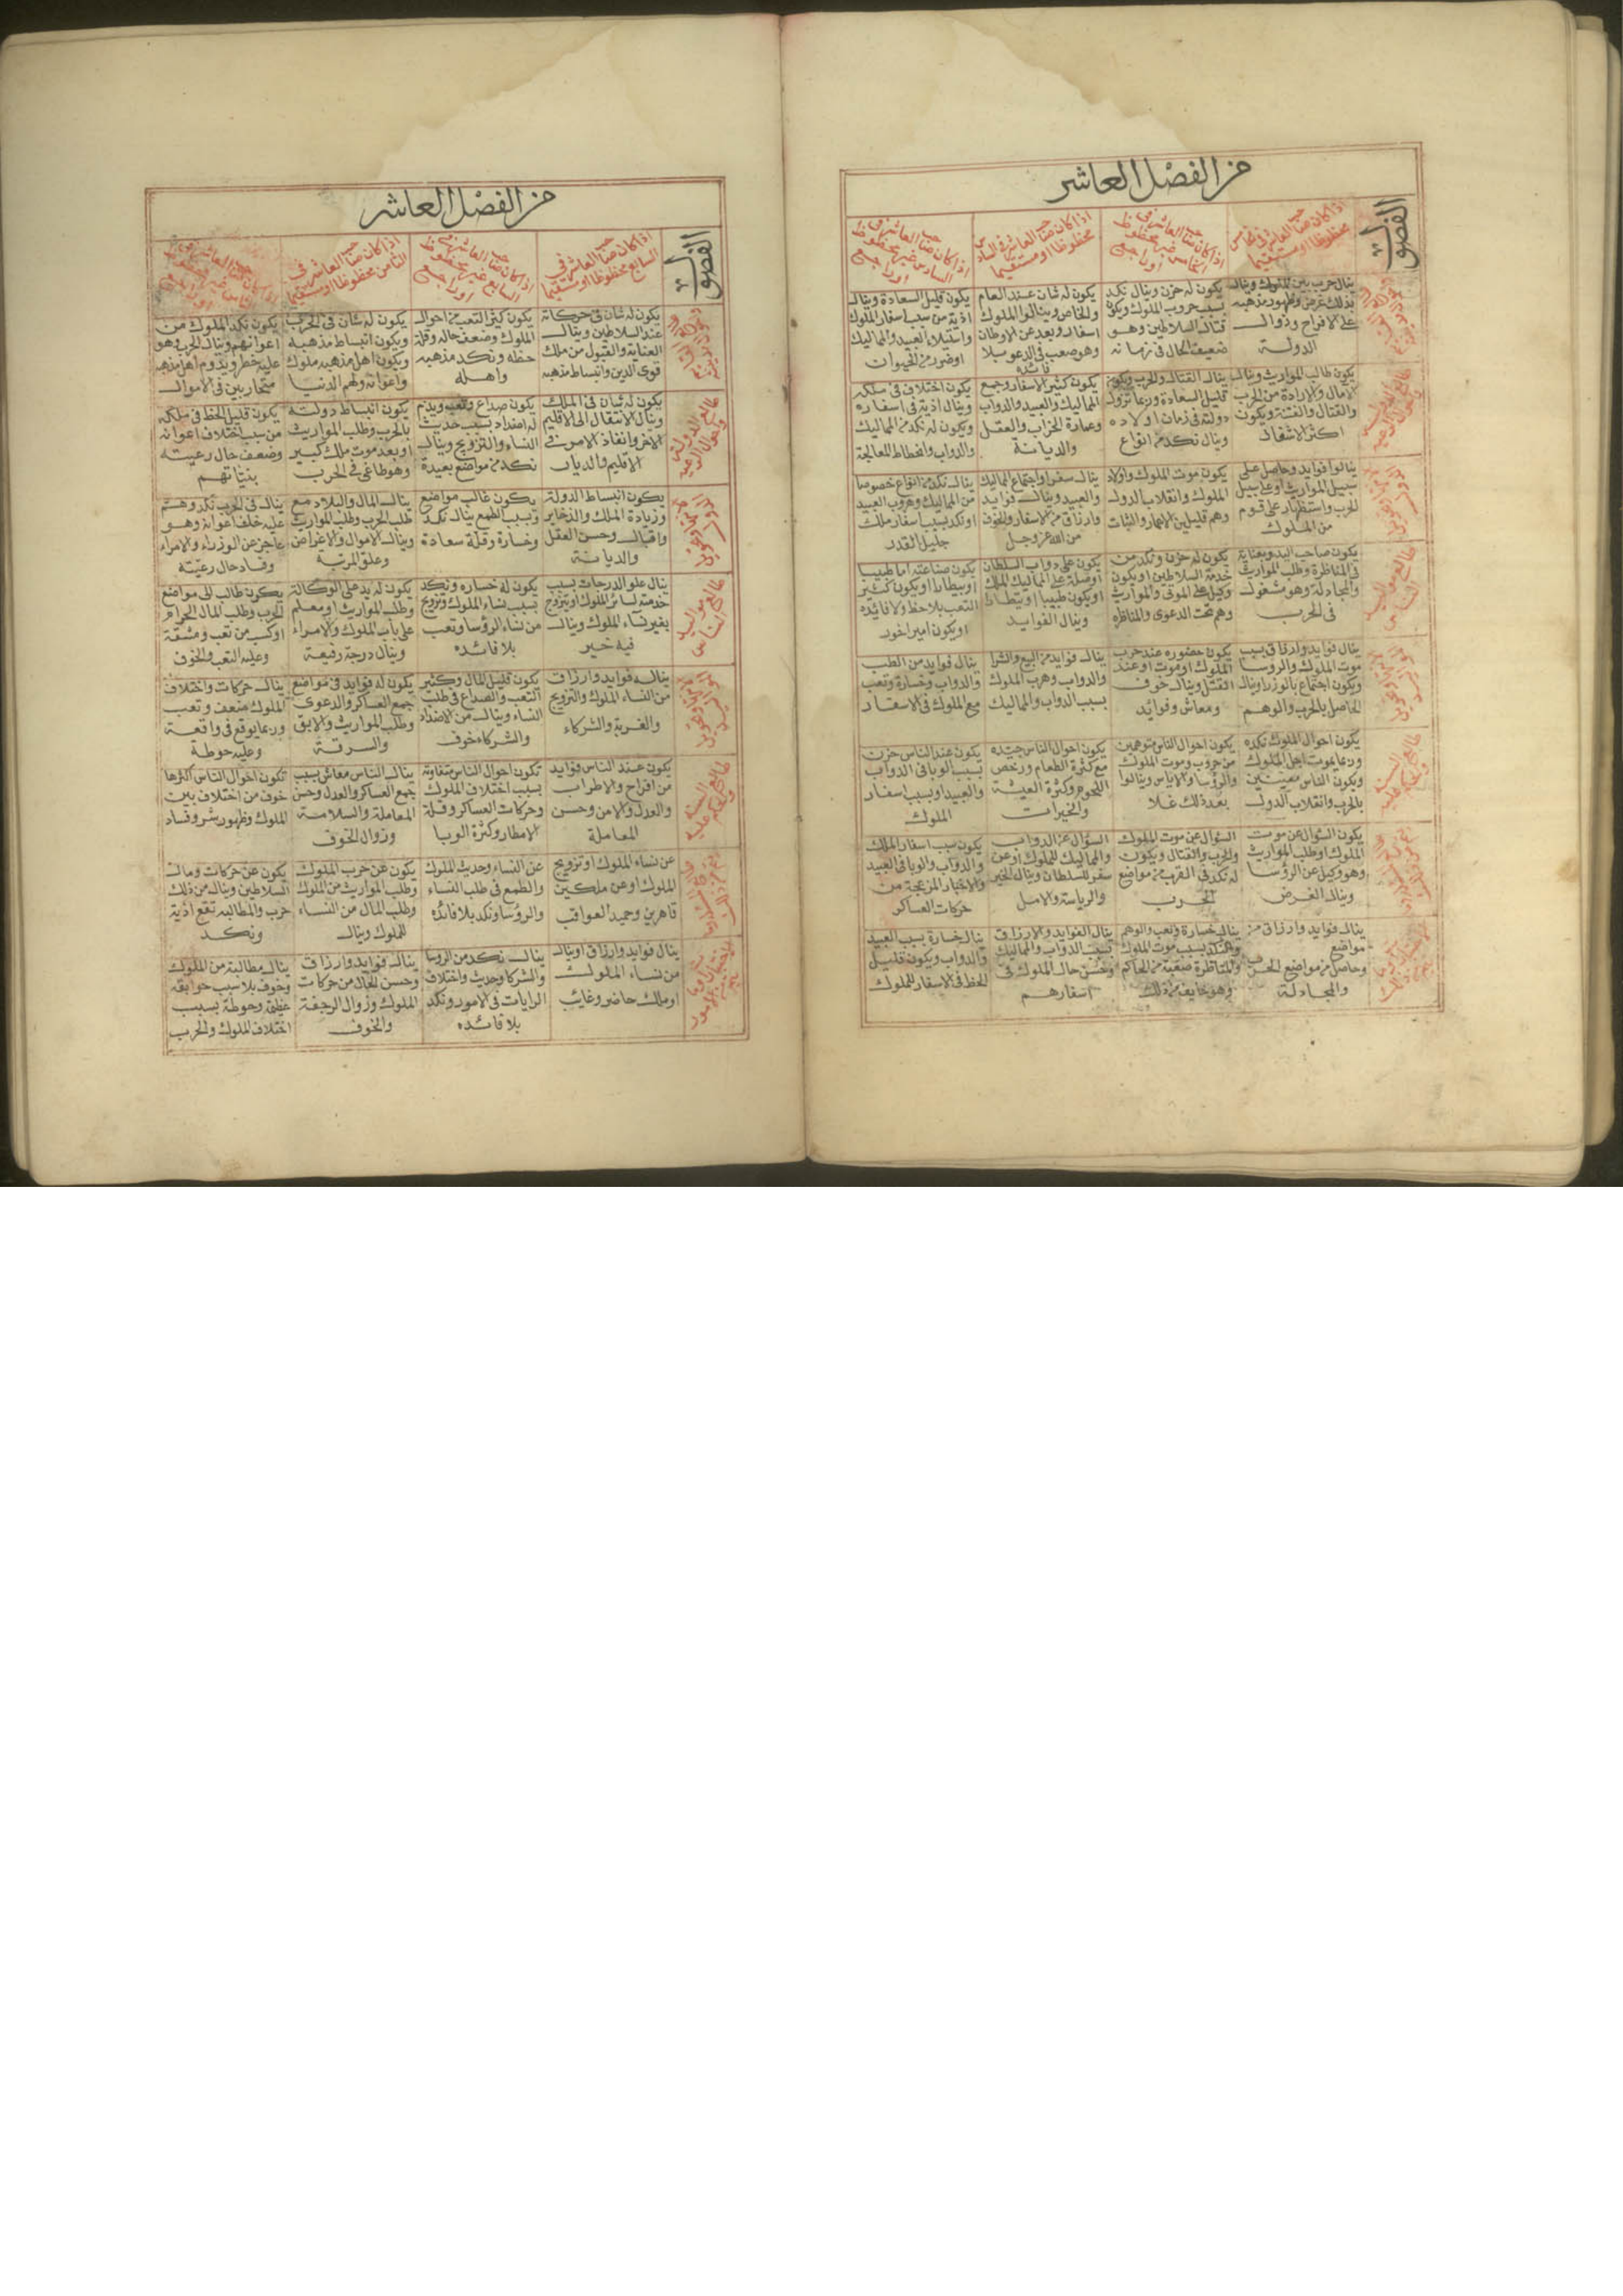 من الفصل العاشر
الفصول
اذا كان صاحب العاشر في الخامس
محظوظا او مستقيما
اذا كان صاحب العاشر في
الخامس غير محظوظ
او راجع
اذا كان صاحب العاشر في السادس
محظوظا او مستقيما
اذا كان صاحب العاشر في
السادس غير محظوظ
او راجع
ينال حرب بين الملوك وينال
بذلك غرض وظهور مذهبه
على الافراح وزوال
الدولة
يكون له حزن وينال نكد
بسبب حروب الملوك ويكون
قتال السلاطين وهو
ضعيف الحال في زمانه
يكون له شان عند العام
والخاص وينالوا الملوك
اسفار وبعد عن الاوطان
وهو صعب في الدعو بلا
فائده
يكون قليل السعادة وينال
اذية من سبب اسفار الملوك
واستيلاء العبيد والمماليك
او ضرر من الحيوانات
يكون طالب المواريث وينال
الامال والارادة من الحرب
والقتال والفتنة ويكون
اكثر الاشغال
ينال القتال والحرب ويكون
قليل السعادة وربما تزول
دولته في زمان اولاده
وينال نكد من انواع
يكون كثير الاسفار وجمع
المماليك والعبيد والدواب
وعمارة الخراب والعقل
والديانة
يكون اختلاف في ملكه
وينال اذية في اسفاره
ويكون له نكد من المماليك
والدواب وانحطاط للمعالجة
ينالوا فوايد وحاصل على
سبيل المواريث او على سبيل
الحرب واستظهار على قوم
من الملوك
يكون موت الملوك واولاد
الملوك وانقلاب الدول
وهم قليلين الاعمار والثبات
ينال سفر او اجتماع المماليك
والعبيد وينال فوايد
وارزاق من الاسفار والخوف
من الله عز وجل
ينال نكد من انواع خصوصا
من المماليك وهروب العبيد
او نكد بسبب اسفار ملك
جليل القدر
يكون صاحب اليد وبعناية
في المناظرة وطلب المواريث
والمجادلة وهو مشغول
في الحرب
يكون له حزن ونكد من
خدمة السلاطين او يكون
وكيل على الموتى والمواريث
وهم تحت الدعوى والمناظره
يكون على دواب السلطان
او وصلة على المماليك الملك
او يكون طبيبا او بيطارا
وينال الفوايد
يكون صناعته اما طبيبا
او بيطارا او يكون كثير
التعب بلا حظ ولا فائده
او يكون امير اخور
ينال فوايد وارزاق بسبب
موت الملوك والروسا
ويكون اجتماع بالوزرا وينال
الحاصل بالحرب والوهم
يكون حضوره عند حرب
الملوك او موت او عند
القتل وينال خوف
ومعاش وفوايد
ينال فوايد من البيع والشرا
والدواب وهرب الملوك
بسبب الدواب والمماليك
ينال فوايد من الطب
والدواب وخسارة وتعب
مع الملوك في الاسفار
يكون احوال الملوك نكده
وربما يموت اجل الملوك
ويكون الناس معينين
بالحرب وانقلاب الدول
يكون احوال الناس متوهمين
من حروب وموت الملوك
والرؤسا والاياس وينالوا
بعد ذلك غلا
يكون احوال الناس جيده
مع كثرة الطعام ورخص
اللحوم وكثرة العيشة
والخيرات
يكون عند الناس حزن
بسبب الوبا في الدواب
والعبيد او بسبب اسفار
الملوك
يكون السؤال عن موت
الملوك او طلب المواريث
وهو وكيل عن الرؤسا
وينال الغرض
السؤال عن موت الملوك
والحرب والقتال ويكون
له نكد في القرب من مواضع
الحرب
السؤال عن الدواب
والمماليك للملوك او عن
سفر للسلطان وينال الخير
والرياسة والامل
يكون سبب اسفار الملك
والدواب والوبا في العبيد
والاخبار المزعجة من
حركات العساكر
ينال فوايد وارزاق من
مواضع
وحاصل من مواضع الحرب
والمجادلة
ينال خسارة وتعب والوهم
ونكد بسبب موت الملوك
والمناظرة صعبة من الحاكم
وهو خايف من ذلك
ينال الفوايد والارزاق
بسبب الدواب والمماليك
وحسن حال الملوك في
اسفارهم
ينال خسارة بسبب العبيد
والدواب ويكون قليل
الحظ في الاسفار للملوك
من الفصل العاشر
الفصول
اذا كان صاحب العاشر في
السابع محظوظا او مستقيما
اذا كان صاحب العاشر في
السابع غير محظوظ
او راجع
اذا كان صاحب العاشر في
الثامن محظوظا او مستقيما
يكون له شان في حركاته
عند السلاطين وينال
العناية والقبول من ملك
قوي الدين وانبساط مذهبه
يكون كثير التعب من احوال
الملوك وضعف حاله وقلة
حظه ونكد مذهبه
واهله
يكون له شان في الحرب
ويكون انبساط مذهبه
ويكون اهل مذهبه ملوك
واعوانه ولهم الدنيا
يكون نكد الملوك من
اعوانهم وينال الحرب وهو
على خطر ويدوم اهل مذهبه
متحاربين في الاموال
يكون له شان في الملك
وينال الانتقال الى الاقليم
الاخر وانفاذ الامر في
الاقليم والديار
يكون صداع وتعب ويذم
له اضداد بسبب حديث
النساء والتزويج وينال
نكد من مواضع بعيدة
يكون انبساط دولته
بالحرب وطلب المواريث
او بعد موت ملك كبير
وهو طاغي في الحرب
يكون قليل الحظ في ملكه
من سبب اختلاف اعوانه
وضعف حال رعيته
بنياتهم
يكون انبساط الدولة
وزيادة الملك والذخاير
واقبال وحسن العقل
والديانة
يكون غالب مواضع
وبسبب الطمع ينال نكد
وخسارة وقلة سعادة
ينال المال والبلاد مع
طلب الحرب وطلب المواريث
وينال الاموال والاغراض
وعلو المرتبة
ينال في الحرب نكد وهم
عليه خلف اعوانه وهو
عاجز عن الوزراء والامراء
وفساد حال رعيته
ينال علو الدرجات بسبب
خدمة لسائر الملوك او يتزوج
بغير نساء الملوك وينال
فيه خير
يكون له خساره ونكد
بسبب نساء الملوك وتزويج
من نساء الرؤسا وتعب
بلا فائده
يكون له يد على الوكالة
وطلب المواريث او معلم
على باب الملوك والامراء
وينال درجة رفيعة
يكون طالب الى مواضع
الحرب وطلب المال الحرام
او كسب من تعب ومشقة
وعليه التعب والخوف
ينال فوايد وارزاق
من النساء الملوك والتزويج
والغربة والشركاء
يكون قليل المال وكثير
التعب والصداع في طلب
النساء وينال من الاضداد
والشركاء خوف
يكون له فوايد في مواضع
جمع العساكر والدعوى
وطلب المواريث والابق
والسرقة
ينال حركات واختلاف
الملوك ضعف وتعب
وربما يوقع في واقعة
وعليه حوطة
يكون عند الناس فوايد
من افراح والاطراب
والعدل والامن وحسن
المعاملة
تكون احوال الناس متفاوته
بسبب اختلاف الملوك
وحركات العساكر وقلة
الامطار وكثرة الوبا
ينال الناس معاش بسبب
جمع العساكر والعدل وحسن
المعاملة والسلامة
وزوال الخوف
تكون احوال الناس اكثرها
خوف من اختلاف بين
الملوك وظهور شر وفساد
عن نساء الملوك او تزويج
الملوك او عن ملكين
قاهرين وحميد العواقب
عن النساء وحديث الملوك
والطمع في طلب النساء
والرؤسا ونكد بلا فائده
يكون عن حرب الملوك
وطلب المواريث من الملوك
وطلب المال من النساء
للملوك وينال
يكون عن حركات ومال
السلاطين وينال من ذلك
حرب والمطالبه تقع اذية
ونكد
ينال فوايد وارزاق او ينال
من نساء الملوك
او ملك حاضر وغايب
ينال نكد من الروسا
والشركا وحديث واختلاف
الرايات في الامور ونكد
بلا فائده
ينال فوايد وارزاق
وحسن الحال من حركات
الملوك وزوال الرجفة
والخوف
ينال مطالبة من الملوك
وخوف بلا سبب
عظيمة وحوطة بسبب
اختلاف الملوك والحرب